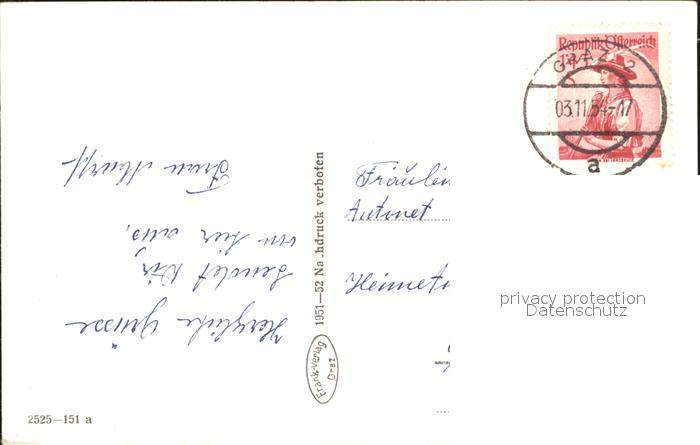 Republik Österreich
GRAZ 2
03.11.54-17
a
Fräulein
Antonet
Heimeta
privacy protection
Datenschutz
Herzliche Grüsse
sendet Dir
von hier aus,
Frau
1951—52 Na.hdruck verboten
Frank-Verlag
Graz
2525—151 a